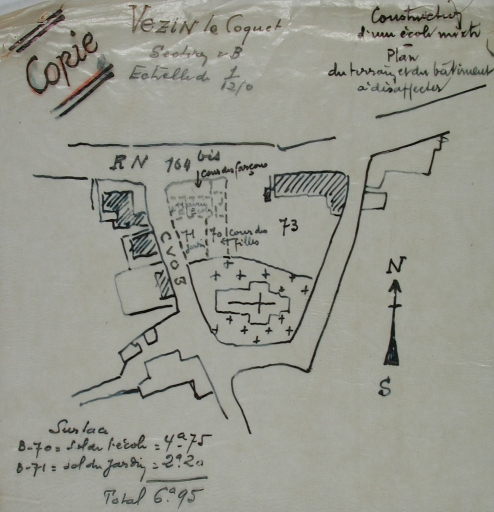 Copie
Vezin le Coquet
Section = B
Echelle de 1/1210
Construction
d'un école mixte
Plan
du terrain et du bâtiment
à désaffecter
RN 164 bis
Cour des garçons
école
71
70
Cour des
filles
73
CVO3
N
S
Surface
B-70 = Sol de l'école = 4a75
B-71 = sol du Jardin = 2a20
Total 6a95